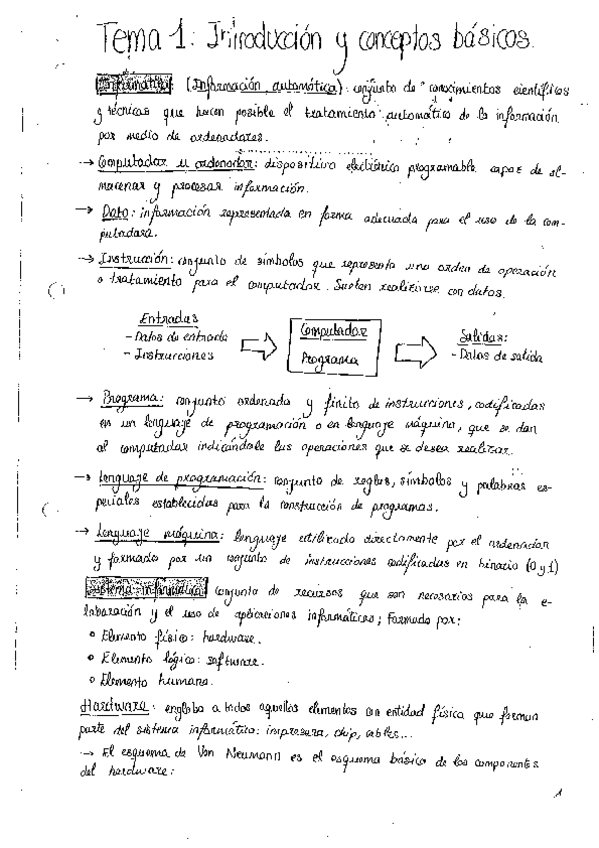 Tema 1: Introducción y conceptos básicos.
Informática: (Información automática): conjunto de conocimientos científicos
y técnicas que hacen posible el tratamiento automático de la información
por medio de ordenadores.
→ Computador u ordenador: dispositivo electrónico programable capaz de al-
macenar y procesar información.
→ Dato: información representada en forma adecuada para el uso de la com-
putadora.
→ Instrucción: conjunto de símbolos que representa una orden de operación
o tratamiento para el computador. Suelen realizarse con datos.
Entradas
- Datos de entrada
- Instrucciones
Computador
Programa
Salidas:
- Datos de salida
→ Programa: conjunto ordenado y finito de instrucciones, codificadas
en un lenguaje de programación o en lenguaje máquina, que se dan
al computador indicándole las operaciones que se desea realizar.
→ Lenguaje de programación: conjunto de reglas, símbolos y palabras es-
peciales establecidas para la construcción de programas.
→ Lenguaje máquina: lenguaje utilizado directamente por el ordenador
y formado por un conjunto de instrucciones codificadas en binario (0 y 1)
Sistema informático: conjunto de recursos que son necesarios para la e-
laboración y el uso de aplicaciones informáticas; formado por:
° Elemento físico: hardware.
° Elemento lógico: software.
° Elemento humano.
Hardware: engloba a todos aquellos elementos con entidad física que forman
parte del sistema informático: impresora, chip, cables...
→ El esquema de Von Neumann es el esquema básico de los componentes
del hardware:
1